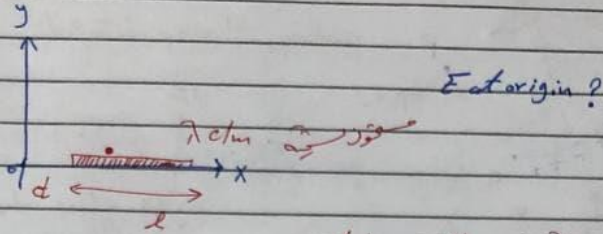 y
E at origin ?
λ c/m
o
x
d
l